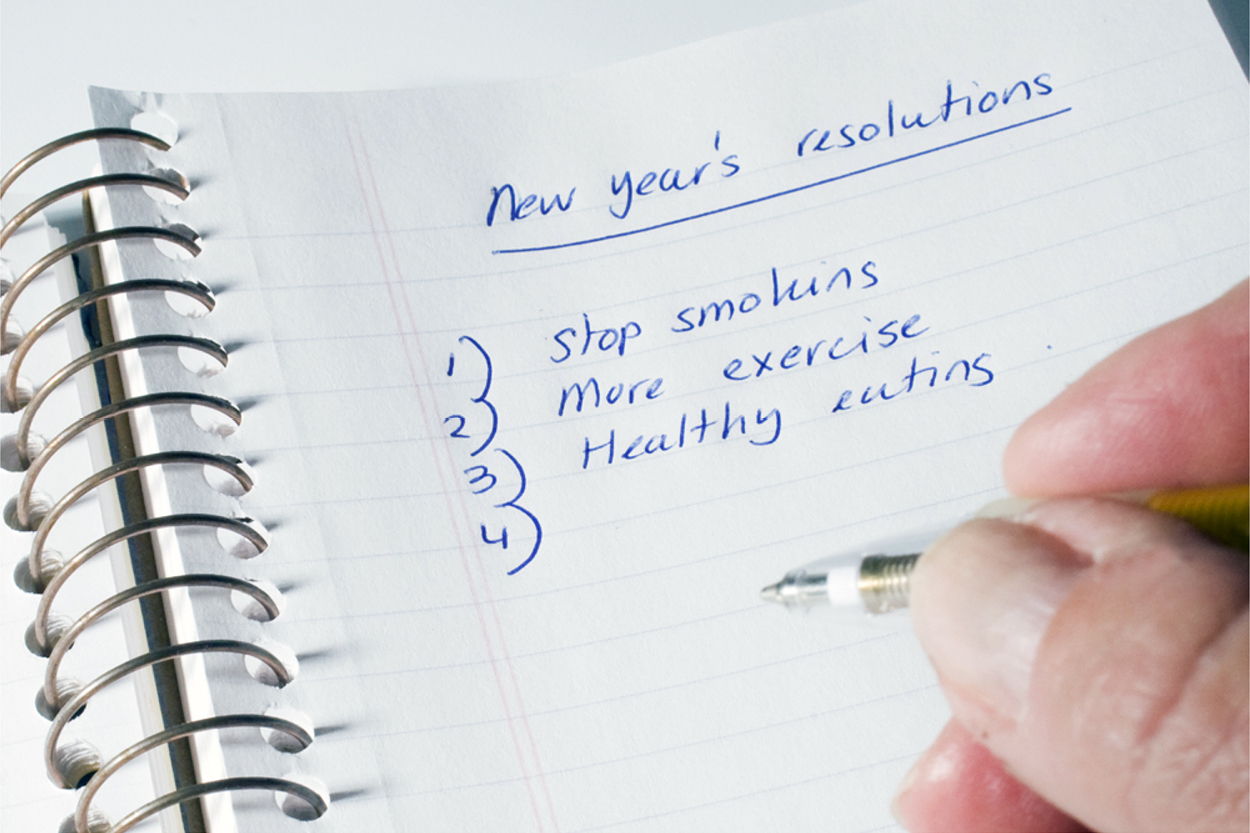 New year's resolutions
1) stop smoking
2) More exercise
3) Healthy eating
4)